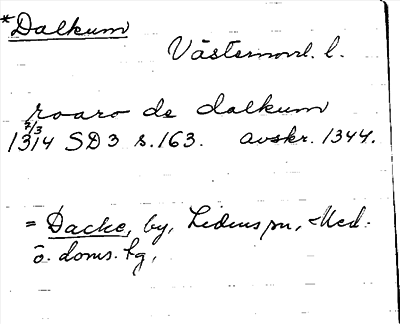 *Dalkum
Västernorrl. l.
roaro de dalkum
7/3
1314 SD 3 s. 163. avskr. 1344.
= Dacke, by, Lidens sn, Med.
ö. doms. hg,